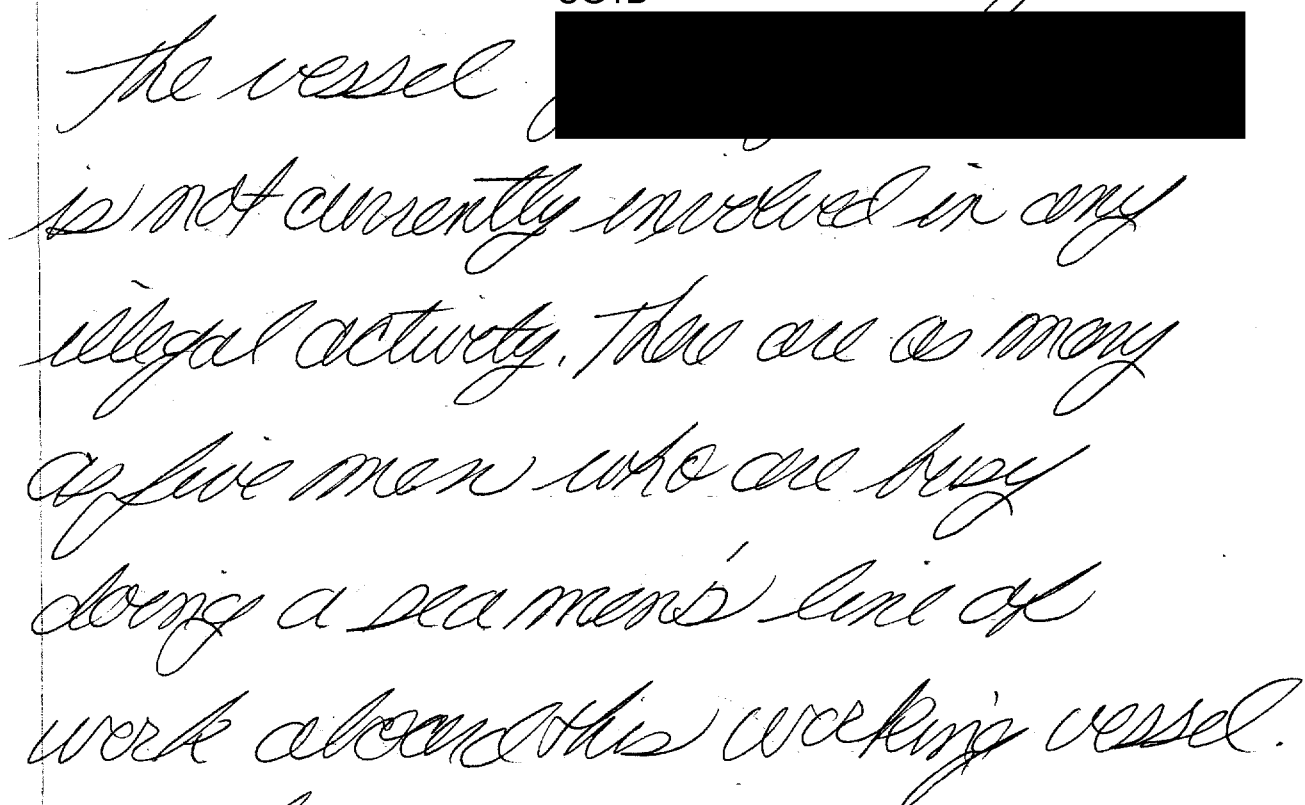 The vessel
is not currently involved in any
illegal activity. There are as many
as five men who are busy
doing a seamen's line of
work aboard this working vessel.